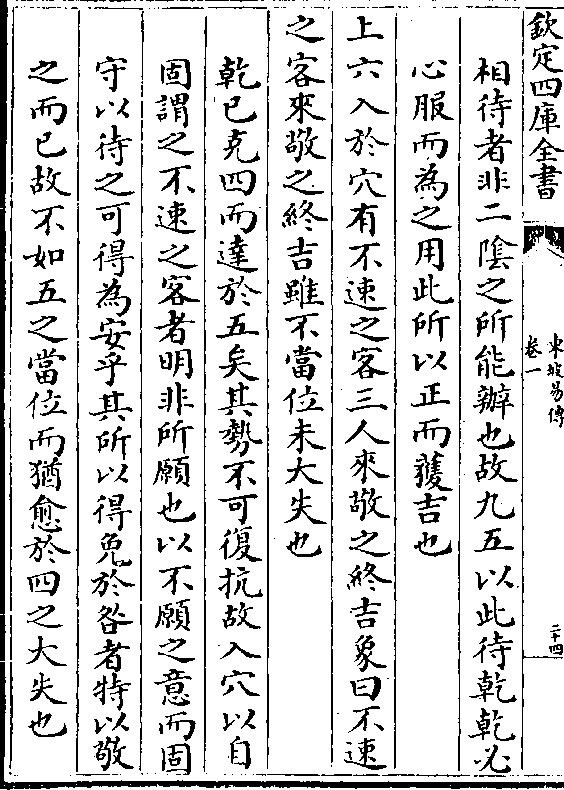 欽定四庫全書
東坡易傳
卷一
二十四
相待者非二隂之所能辦也故九五以此待乾乾必
心服而為之用此所以正而獲吉也
上六入於穴有不速之客三人來敬之終吉象曰不速
之客來敬之終吉雖不當位未大失也
乾已克四而達於五矣其勢不可復抗故入穴以自
固謂之不速之客者明非所願也以不願之意而固
守以待之可得為安乎其所以得免於咎者特以敬
之而已故不如五之當位而猶愈於四之大失也